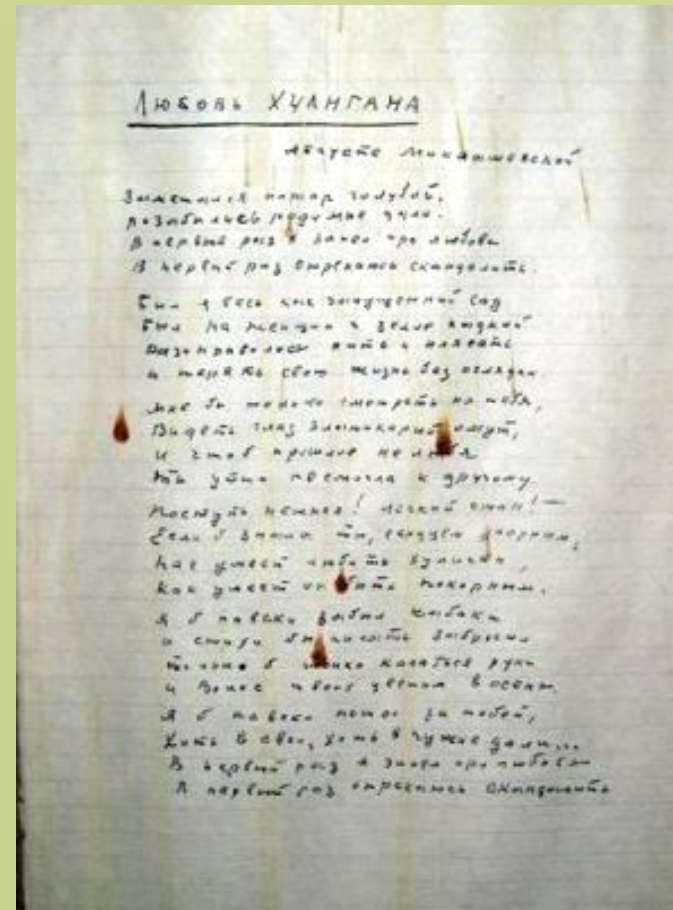 ЛЮБОВЬ ХУЛИГАНА
Августе Миклашевской
Заметался пожар голубой,
позабылись родимые дали.
В первый раз я запел про любовь
В первый раз отрекаюсь скандалить.
Был я весь как запущенный сад
был на женщин и зелие падкий
Разонравилось пить и плясать
и терять свою жизнь без оглядки.
Мне бы только смотреть на тебя,
Видеть глаз златокарий омут,
И чтоб прошлое не любя
Ты уйти не смогла к другому.
Поступь нежная! легкий стан! —
Если б знала ты, сердцем упорным,
Как умеет любить хулиган,
Как умеет он быть покорным.
Я б навеки забыл кабаки
и стихи бы писать забросил
только б тонко касаться руки
и Волос твоих цветом в осень.
Я б навеки пошел за тобой,
Хоть в свои, хоть в чужие дали...
В первый раз я запел про любовь
В первый раз отрекаюсь скандалить